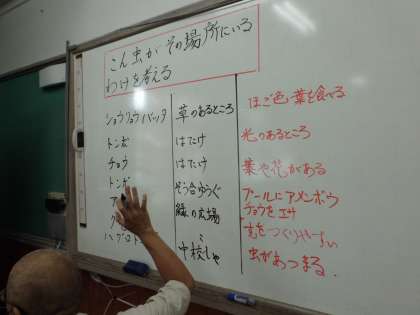 こん虫が その場所にいる
わけを考える
ショウリョウバッタ 草のあるところ ほご色 葉を食べる
トンボ はたけ 光のあるところ
チョウ はたけ 葉や花がある
トンボ そう合ゆうぐ プールにアメンボウ
緑の広場 チョウをエサ
中校しゃ 虫があつまる